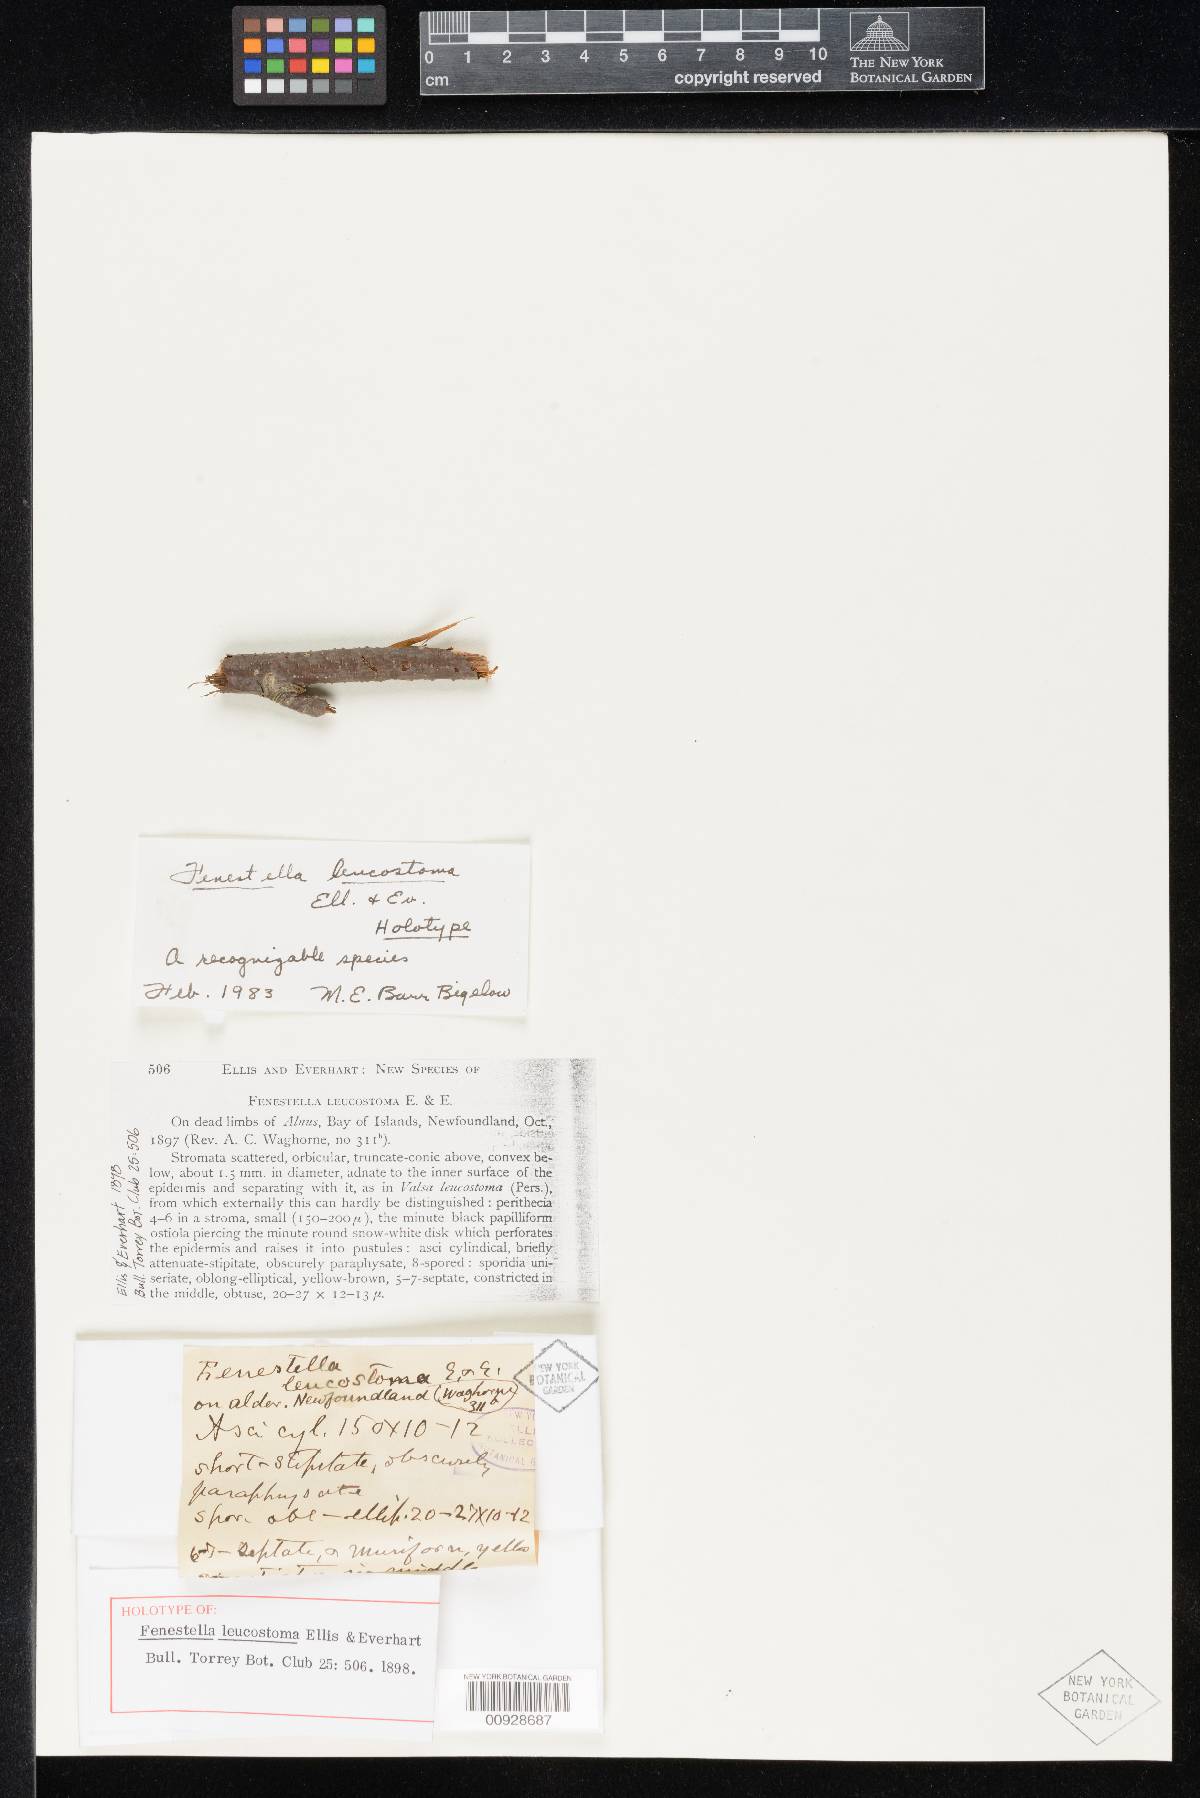 0 1 2 3 4 5 6 7 8 9 10
cm
copyright reserved
THE NEW YORK
BOTANICAL GARDEN
Fenestella leucostoma
Ell. & Ev.
Holotype
A recognizable species
Feb. 1983 M. E. Barr Bigelow
506 ELLIS AND EVERHART: NEW SPECIES OF
FENESTELLA LEUCOSTOMA E. & E.
On dead limbs of Alnus, Bay of Islands, Newfoundland, Oct.,
1897 (Rev. A. C. Waghorne, no 311b).
Stromata scattered, orbicular, truncate-conic above, convex be-
low, about 1.5 mm. in diameter, adnate to the inner surface of the
epidermis and separating with it, as in Valsa leucostoma (Pers.),
from which externally this can hardly be distinguished: perithecia
4–6 in a stroma, small (150–200 µ), the minute black papilliform
ostiola piercing the minute round snow-white disk which perforates
the epidermis and raises it into pustules: asci cylindical, briefly
attenuate-stipitate, obscurely paraphysate, 8-spored: sporidia uni-
seriate, oblong-elliptical, yellow-brown, 5–7-septate, constricted in
the middle, obtuse, 20–27 × 12–13 µ.
Ellis & Everhart 1898
Bull. Torrey Bot. Club 25:506
Fenestella
leucostoma E. & E.
on alder. Newfoundland (Waghorne
311
Asci cyl. 150x10-12
short-stipitate, obscurely
paraphysate
spor. obl-ellip. 20-27x10-12
septate, & muriform, yello
in middle
NEW YORK
BOTANICAL
GARDEN
HOLOTYPE OF:
Fenestella leucostoma Ellis & Everhart
Bull. Torrey Bot. Club 25: 506. 1898.
NEW YORK BOTANICAL GARDEN
00928687
NEW YORK
BOTANICAL
GARDEN